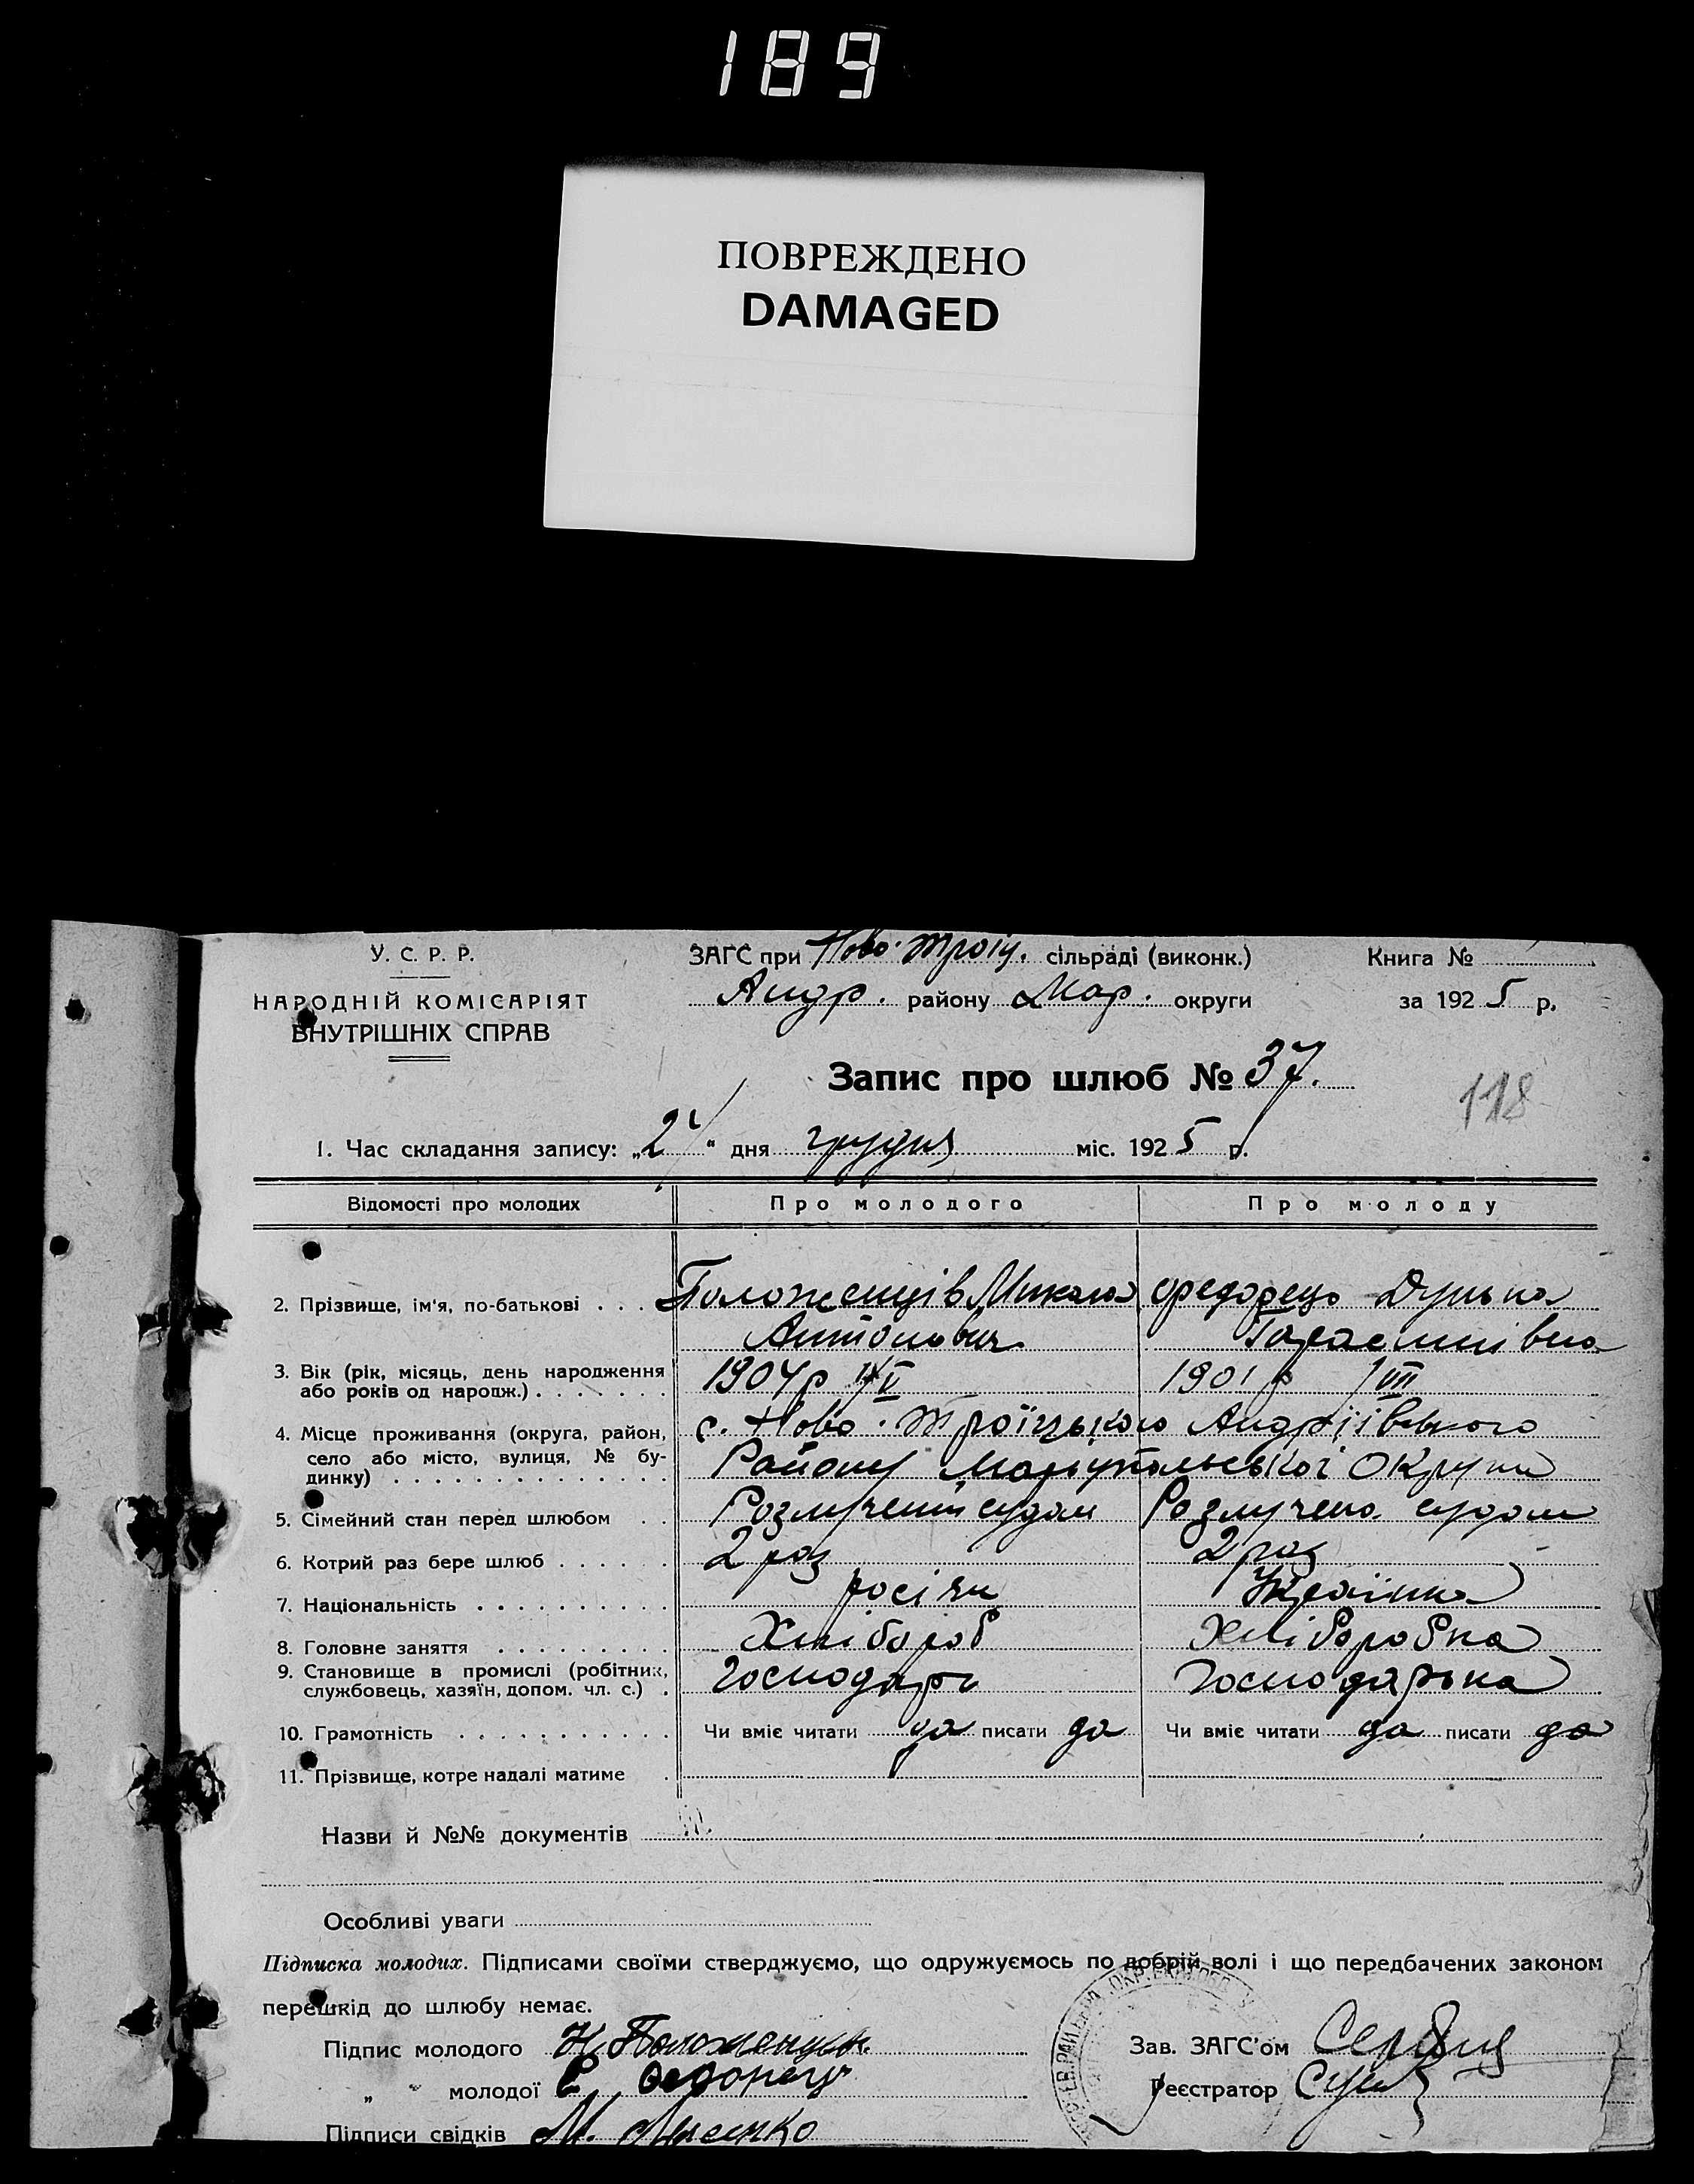 189
ПОВРЕЖДЕНО
DAMAGED
У. С. Р. Р.
НАРОДНІЙ КОМІСАРІЯТ
ВНУТРІШНІХ СПРАВ
ЗАГС при Ново-Троіц. сільраді (виконк.)
Андр. району Мар. округи
Книга №
за 1925 р.
Запис про шлюб № 37.
118
1. Час складання запису: „2/“ дня грудня міс. 1925 р.
Відомості про молодих Про молодого Про молоду
2. Прізвище, ім'я, по-батькові . . . Положенців Микола Федорець
Антонович
3. Вік (рік, місяць, день народження
або років од народж.) . . . . . . . 1904 р V 1901 р 1/VII
4. Місце проживання (округа, район,
село або місто, вулиця, № бу-
динку) . . . . . . . . . . . . . .
с. Ново-Троїцького Андріївського
Району Маріупольської Округи
5. Сімейний стан перед шлюбом . . Розлучений судом Розлучена судом
6. Котрий раз бере шлюб . . . . . . 2 раз 2 раз
7. Національність . . . . . . . . . . росіян Українка
8. Головне заняття . . . . . . . . . Хлібороб Хлібооробка
9. Становище в промислі (робітник,
службовець, хазяїн, допом. чл. с.) . Господарь Господарька
10. Грамотність . . . . . . . . . . . Чи вміє читати да писати да Чи вміє читати да писати да
11. Прізвище, котре надалі матиме .
Назви й №№ документів
Особливі уваги
Підписка молодих. Підписами своїми стверджуємо, що одружуємось по добрій волі і що передбачених законом
перешкід до шлюбу немає.
Підпис молодого Н. Положенцев
„ „ молодої Федорець
Підписи свідків М. Лисенко
Зав. ЗАГС'ом
Реєстратор